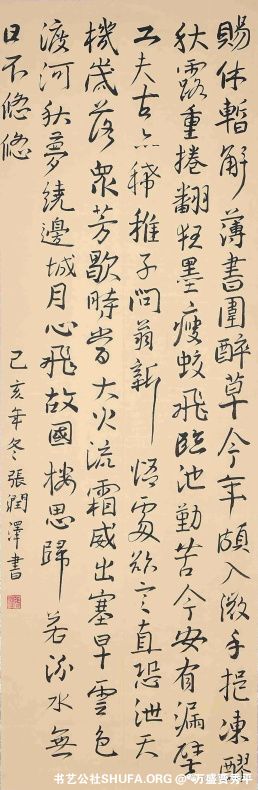 賜休暫解薄書圍醉草今年頗入微手挹凍醪
秋露重捲翻狂墨瘦蛟飛臨池勤苦今安有漏壁
工夫古亦稀稚子問翁新悟處欲言直恐泄天
機歲落衆芳歇時當大火流霜威出塞早雲色
渡河秋夢繞邊城月心飛故國樓思歸若汾水無
日不悠悠
己亥年冬張潤澤書
书艺公社SHUFA.ORG @万盛曹秀平